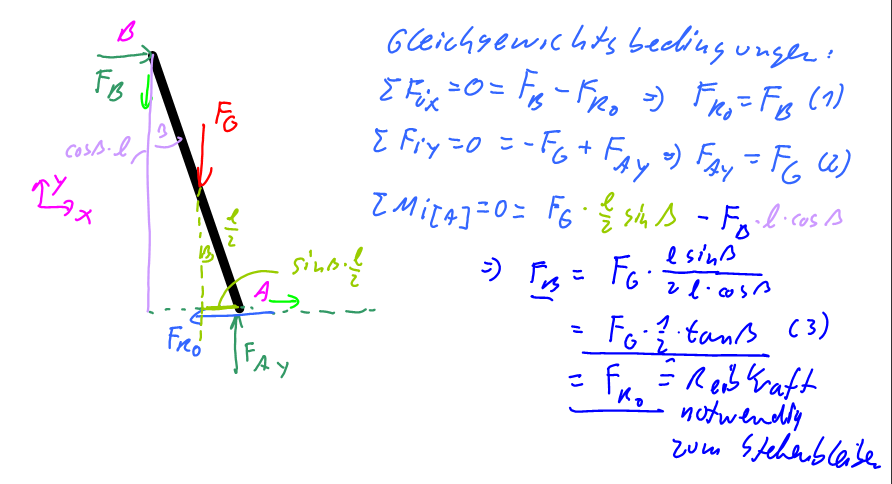 B
F_B
F_G
cosβ·l
β
Y
X
l/2
β
sinβ·l/2
A
F_R0
F_AY
Gleichgewichtsbedingungen:
ΣF_ix = 0 = F_B - F_R0 ⇒ F_R0 = F_B (1)
ΣF_iY = 0 = -F_G + F_AY ⇒ F_AY = F_G (2)
ΣM_i[A] = 0 = F_G · l/2 sinβ - F_B · l · cosβ
⇒ F_B = F_G · l sinβ / 2 l · cosβ
= F_G · 1/2 · tanβ (3)
= F_R0 ≙ Reibkraft
notwendig
zum Stehenbleiben